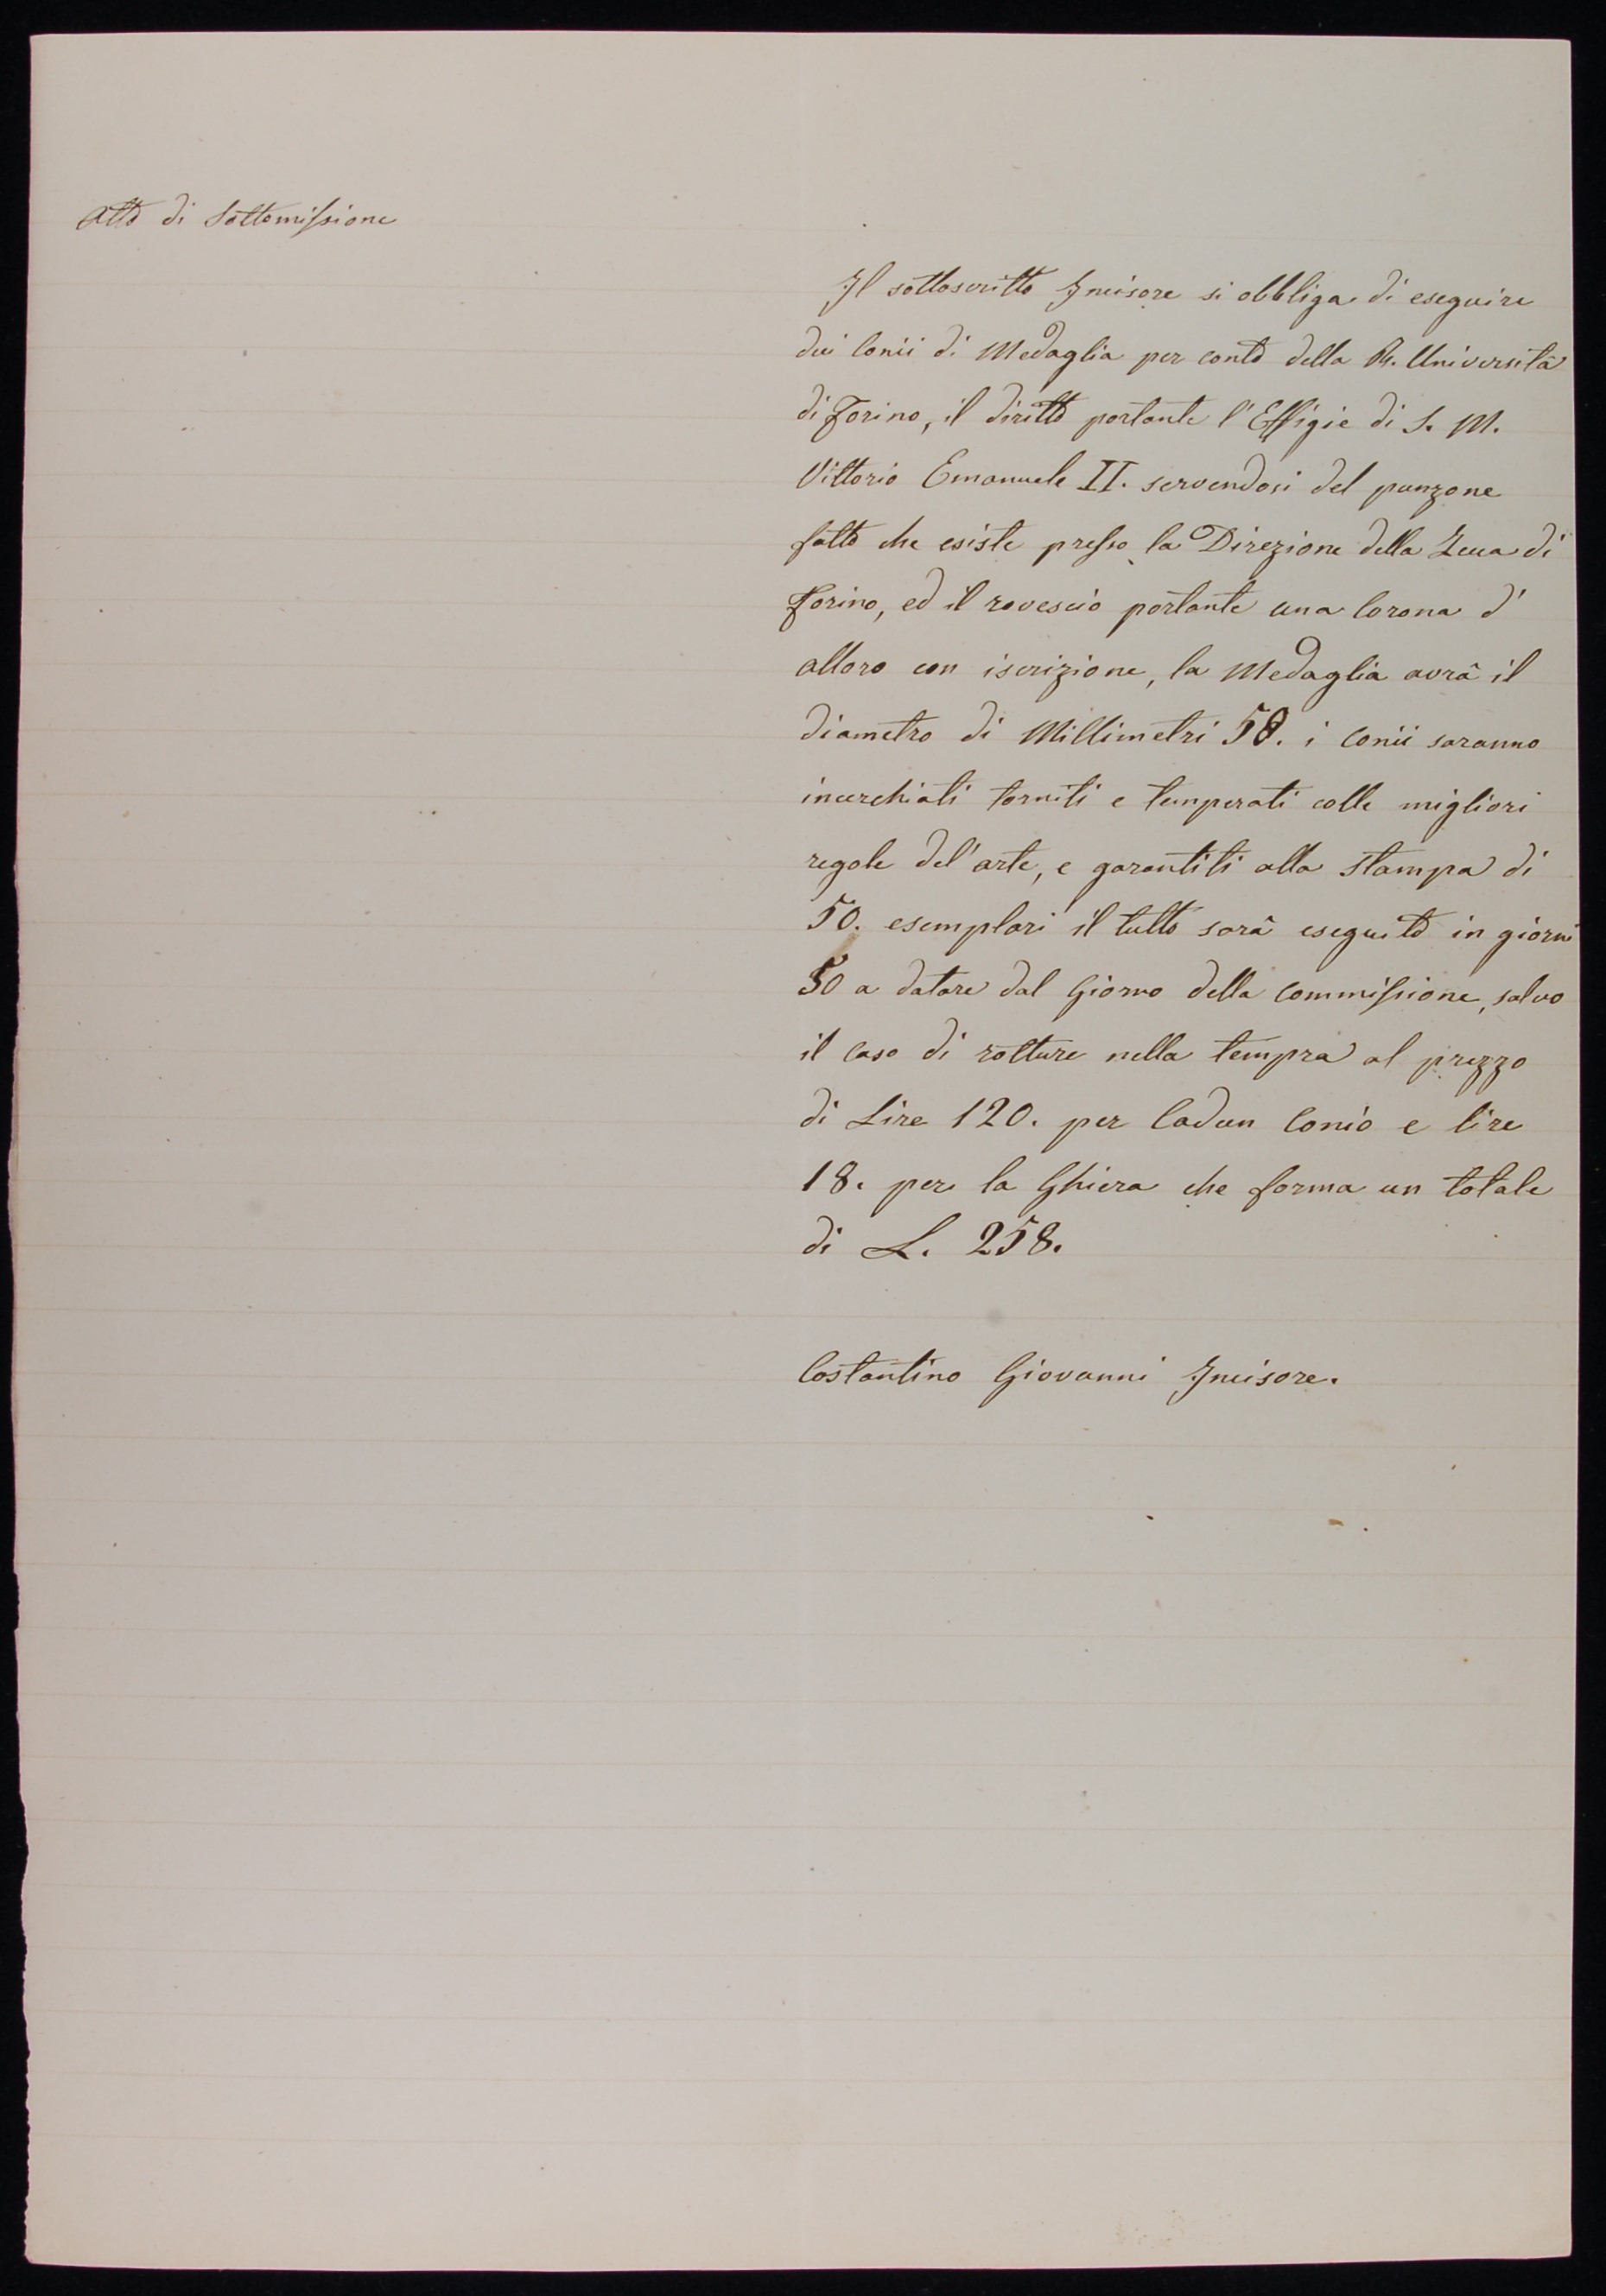 Atto di Sottomissione
Il sottoscritto Incisore si obbliga di eseguire
dui Conii di Medaglia per conto della R. Università
di Torino, il diritto portante l'Effigie di S. M.
Vittorio Emanuele II. servendosi del punzone
fatto che esiste presso la Direzione della Zecca di
Torino, ed il rovescio portante una Corona d'
alloro con iscrizione, la Medaglia avrà il
diametro di Millimetri 58. i Conii saranno
incerchiati torniti e temperati colle migliori
regole del'arte, e garantiti alla Stampa di
50. esemplari il tutto sarà eseguito in giorni
50 a datare dal Giorno della Commissione, salvo
il caso di rotture nella tempra al prezzo
di Lire 120. per Cadun Conio e lire
18. per la Ghiera che forma un totale
di L. 258.
Costantino Giovanni Incisore.